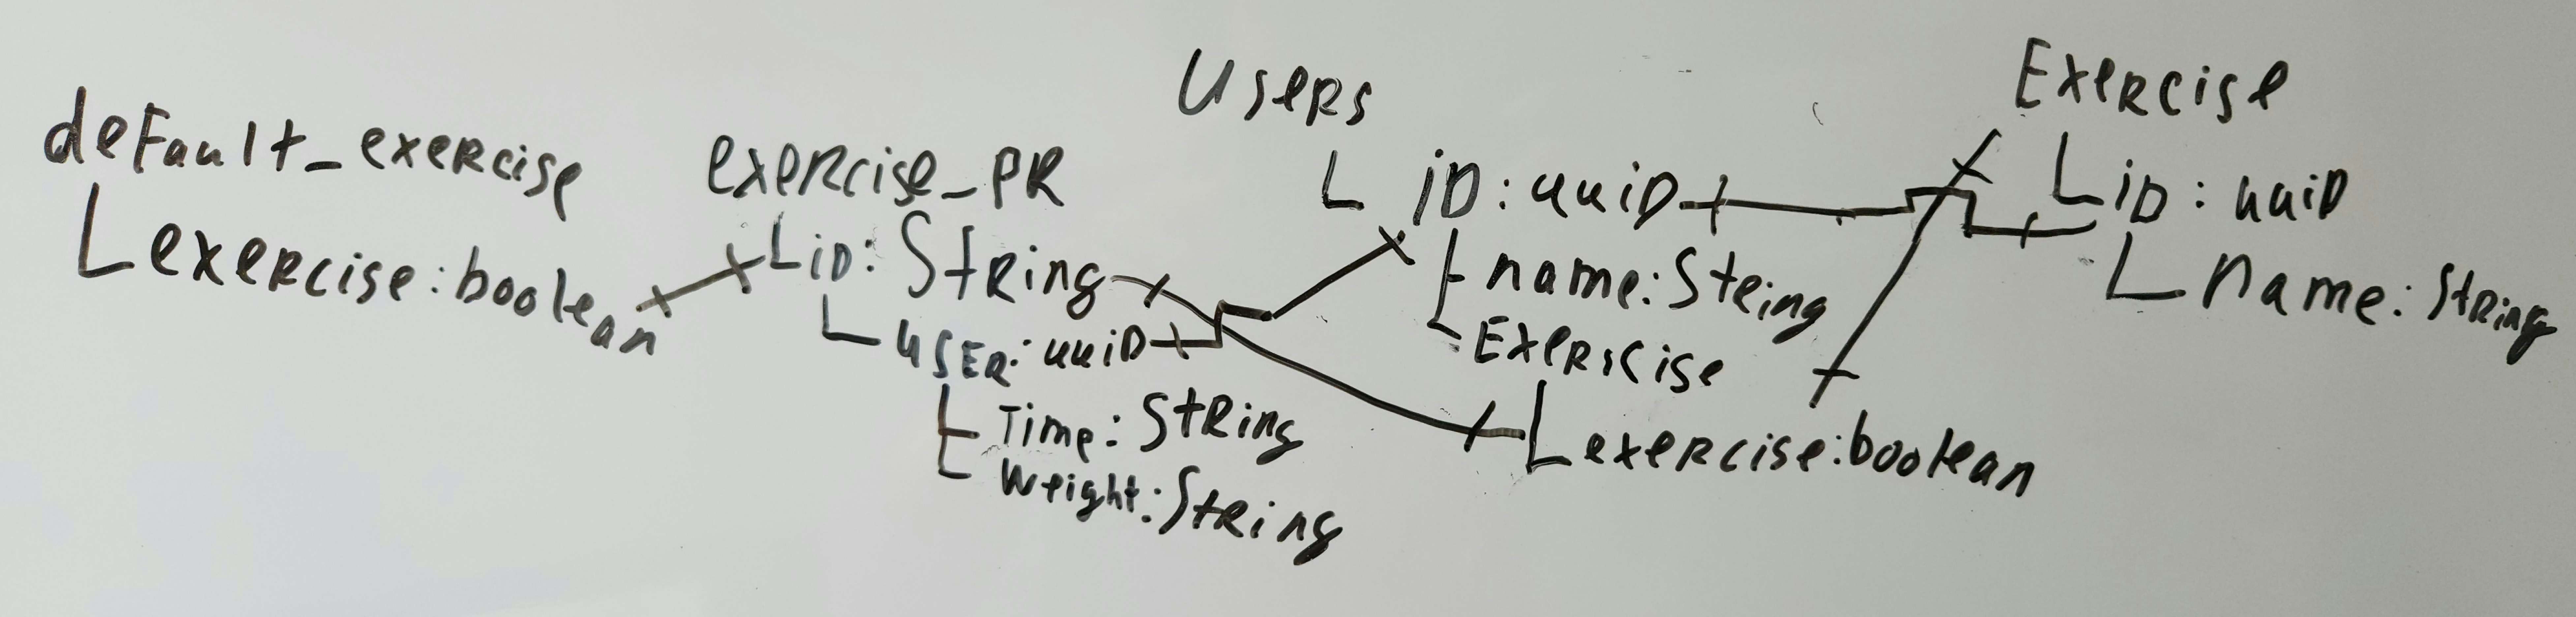 default_exercise
exercise:boolean
exercise_PR
iD: String
uSER: uuiD
Time: String
Weight: String
Users
iD: uuiD
name: String
Exerscise
exercise: boolean
Exercise
iD: uuiD
name: String